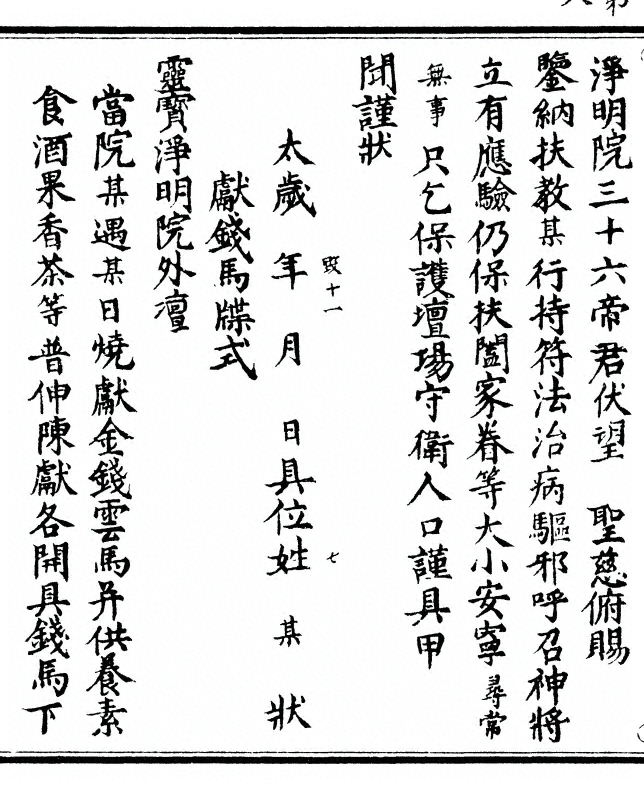 淨明院三十六帝君伏望　聖慈俯賜
鑒納扶教某行持符法治病驅邪呼召神將
立有應驗仍保扶闔家眷等大小安寧尋常
無事只乞保護壇場守衛人口謹具甲
聞謹狀
太歲　年　月　日具位姓　某　狀
獻錢馬牒式
靈寶淨明院外壇
當院某遇某日燒獻金錢雲馬并供養素
食酒果香茶等普伸陳獻各開具錢馬下